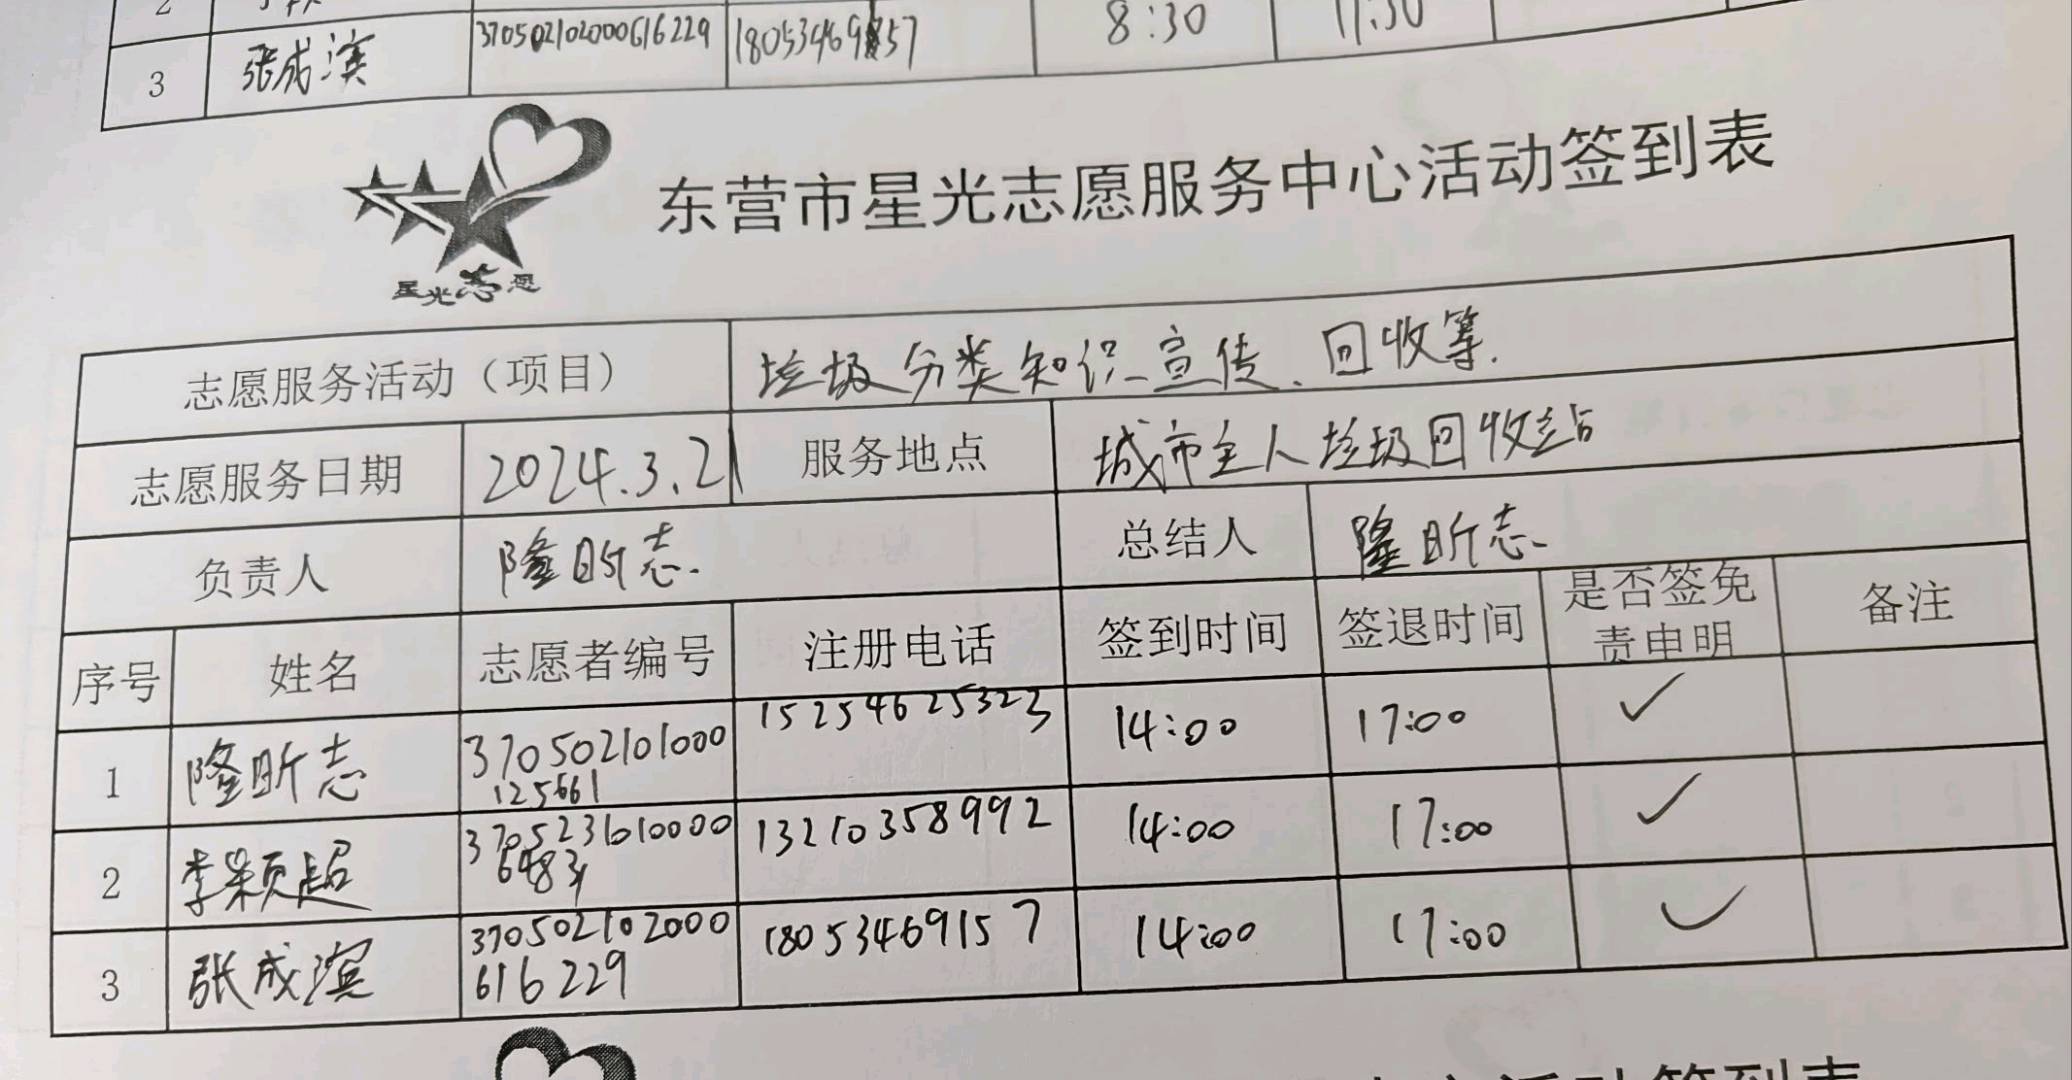 2
3 张成滨 370502102000616229 18053469157 8:30 11:30
东营市星光志愿服务中心活动签到表
星光志愿
志愿服务活动（项目） 垃圾分类知识宣传、回收等.
志愿服务日期 2024.3.21 服务地点 城市主人垃圾回收站
负责人 隆昕志. 总结人 隆昕志
序号 姓名 志愿者编号 注册电话 签到时间 签退时间 是否签免
责申明 备注
1 隆昕志 370502101000
125661 15254625323 14:00 17:00 ✓
2 李颖超 370523101 0000
6483 13210358992 14:00 17:00 ✓
3 张成滨 370502102000
616229 18053469157 14:00 17:00 ✓
活动签到表